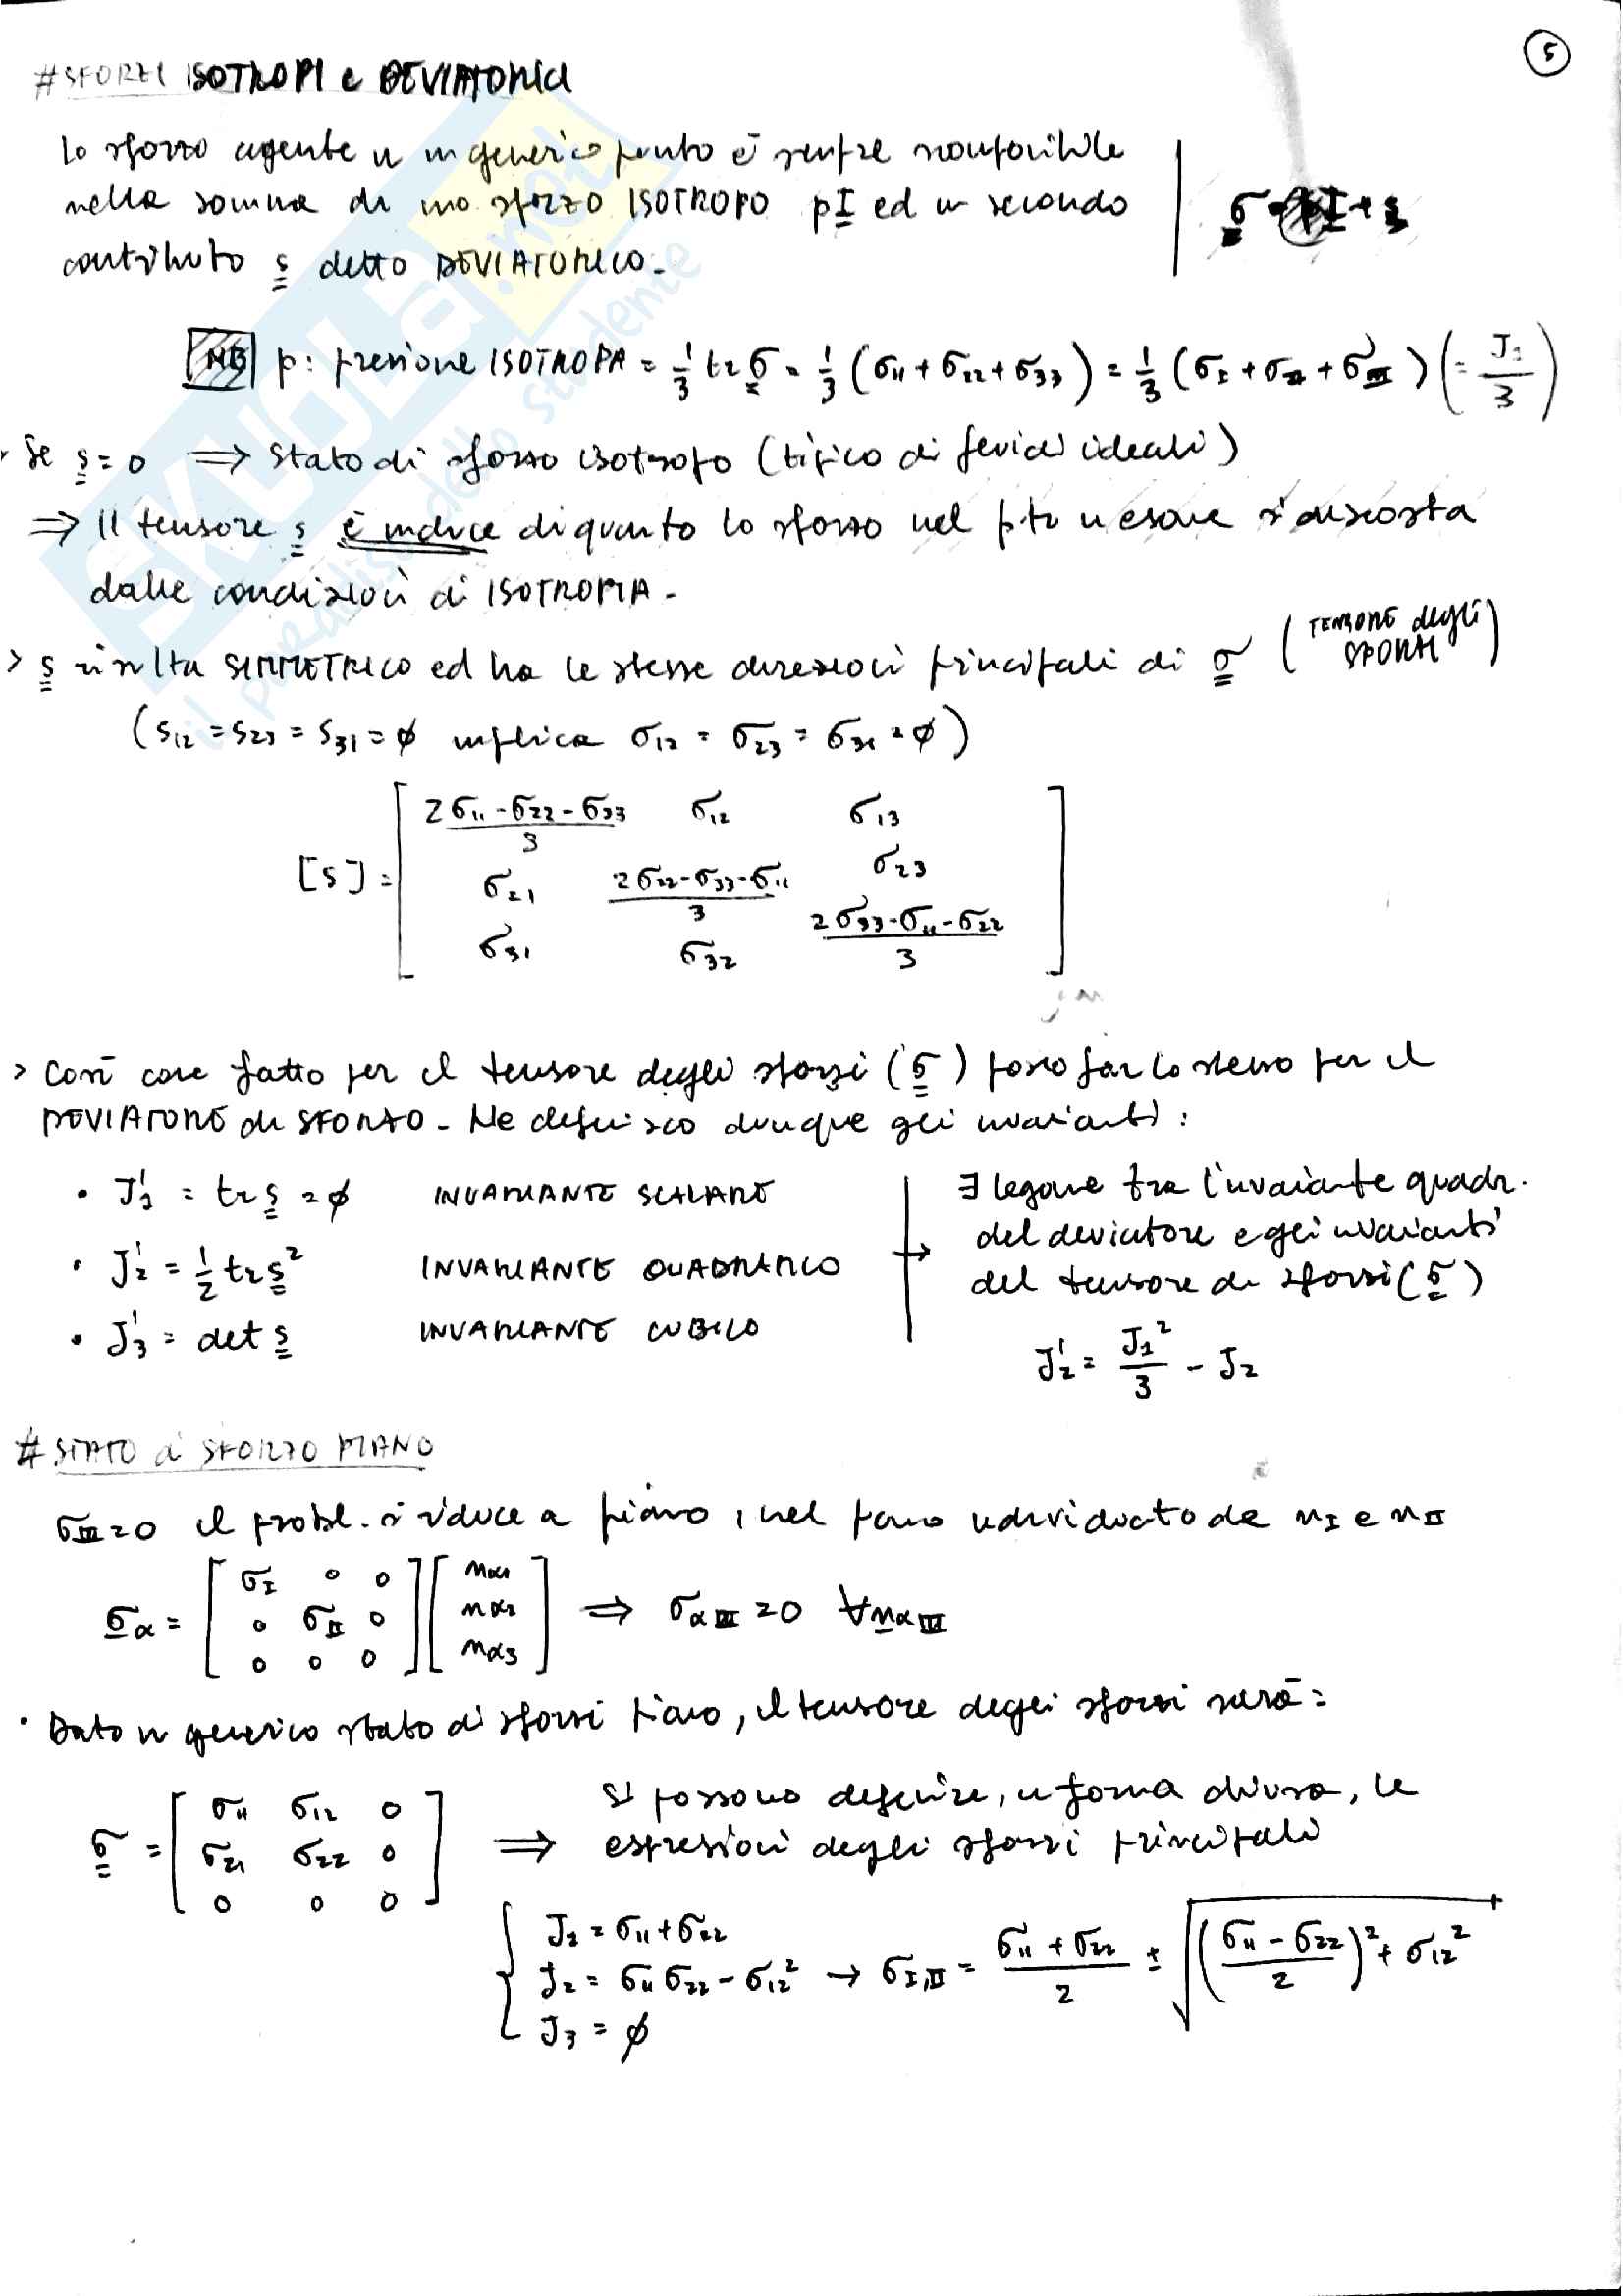 5
#SFORZI ISOTROPI e DEVIATORICI
Lo sforzo agente in un generico punto è sempre scomponibile
nella somma di uno sforzo ISOTROPO pI ed un secondo
contributo s detto DEVIATORICO.
σ = pI + s
NB p: pressione ISOTROPA = 1/3 tr σ = 1/3 (σ11 + σ22 + σ33) = 1/3 (σI + σII + σIII) (= J1/3)
Se s = 0 ⇒ stato di sforzo isotropo (tipico di fluidi ideali)
⇒ Il tensore s è indice di quanto lo sforzo nel pto in esame si discosta
dalle condizioni di ISOTROPIA.
> s risulta SIMMETRICO ed ha le stesse direzioni principali di σ (TENSORE degli SFORZI)
(s12 = s23 = s31 = ϕ implica σ12 = σ23 = σ31 = ϕ)
[s] = [ (2σ11 - σ22 - σ33)/3 σ12 σ13
σ21 (2σ22 - σ33 - σ11)/3 σ23
σ31 σ32 (2σ33 - σ11 - σ22)/3 ]
> Così come fatto per il tensore degli sforzi (σ) posso far lo stesso per il
DEVIATORE di SFORZO. Ne definisco dunque gli invarianti:
• J'1 = tr s = ϕ INVARIANTE SCALARE
• J'2 = 1/2 tr s² INVARIANTE QUADRATICO
• J'3 = det s INVARIANTE CUBICO
→ ∃ legame tra l'invariante quadr.
del deviatore e gli invarianti
del tensore di sforzi (σ)
J'2 = J1²/3 - J2
#STATO di SFORZO PIANO
σIII = 0 il probl. si riduce a piano, nel piano individuato da nI e nII
σα = [ σI 0 0 ] [ nα1 ] ⇒ σαIII = 0 ∀ nαIII
[ 0 σII 0 ] [ nα2 ]
[ 0 0 0 ] [ nα3 ]
• Dato un generico stato di sforzi piano, il tensore degli sforzi sarà:
σ = [ σ11 σ12 0 ] ⇒ si possono definire, in forma chiusa, le
[ σ21 σ22 0 ] espressioni degli sforzi principali
[ 0 0 0 ]
J1 = σ11 + σ22
J2 = σ11 σ22 - σ12² → σI,II = (σ11 + σ22)/2 ± √(((σ11 - σ22)/2)² + σ12²)
J3 = ϕ
SKUOLA.net
il paradiso dello studente